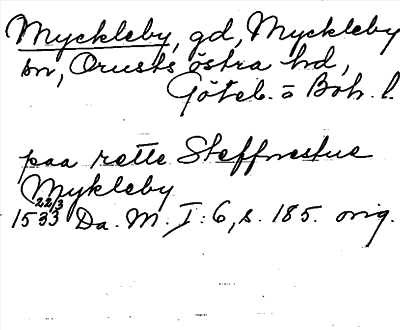 Myckleby, gd, Myckleby
sn, Orusts östra hd,
Göteb. o Boh. l.
paa rette Steffnestue
Mykleby
1533 22/3 Da. M. I: 6, s. 185. orig.